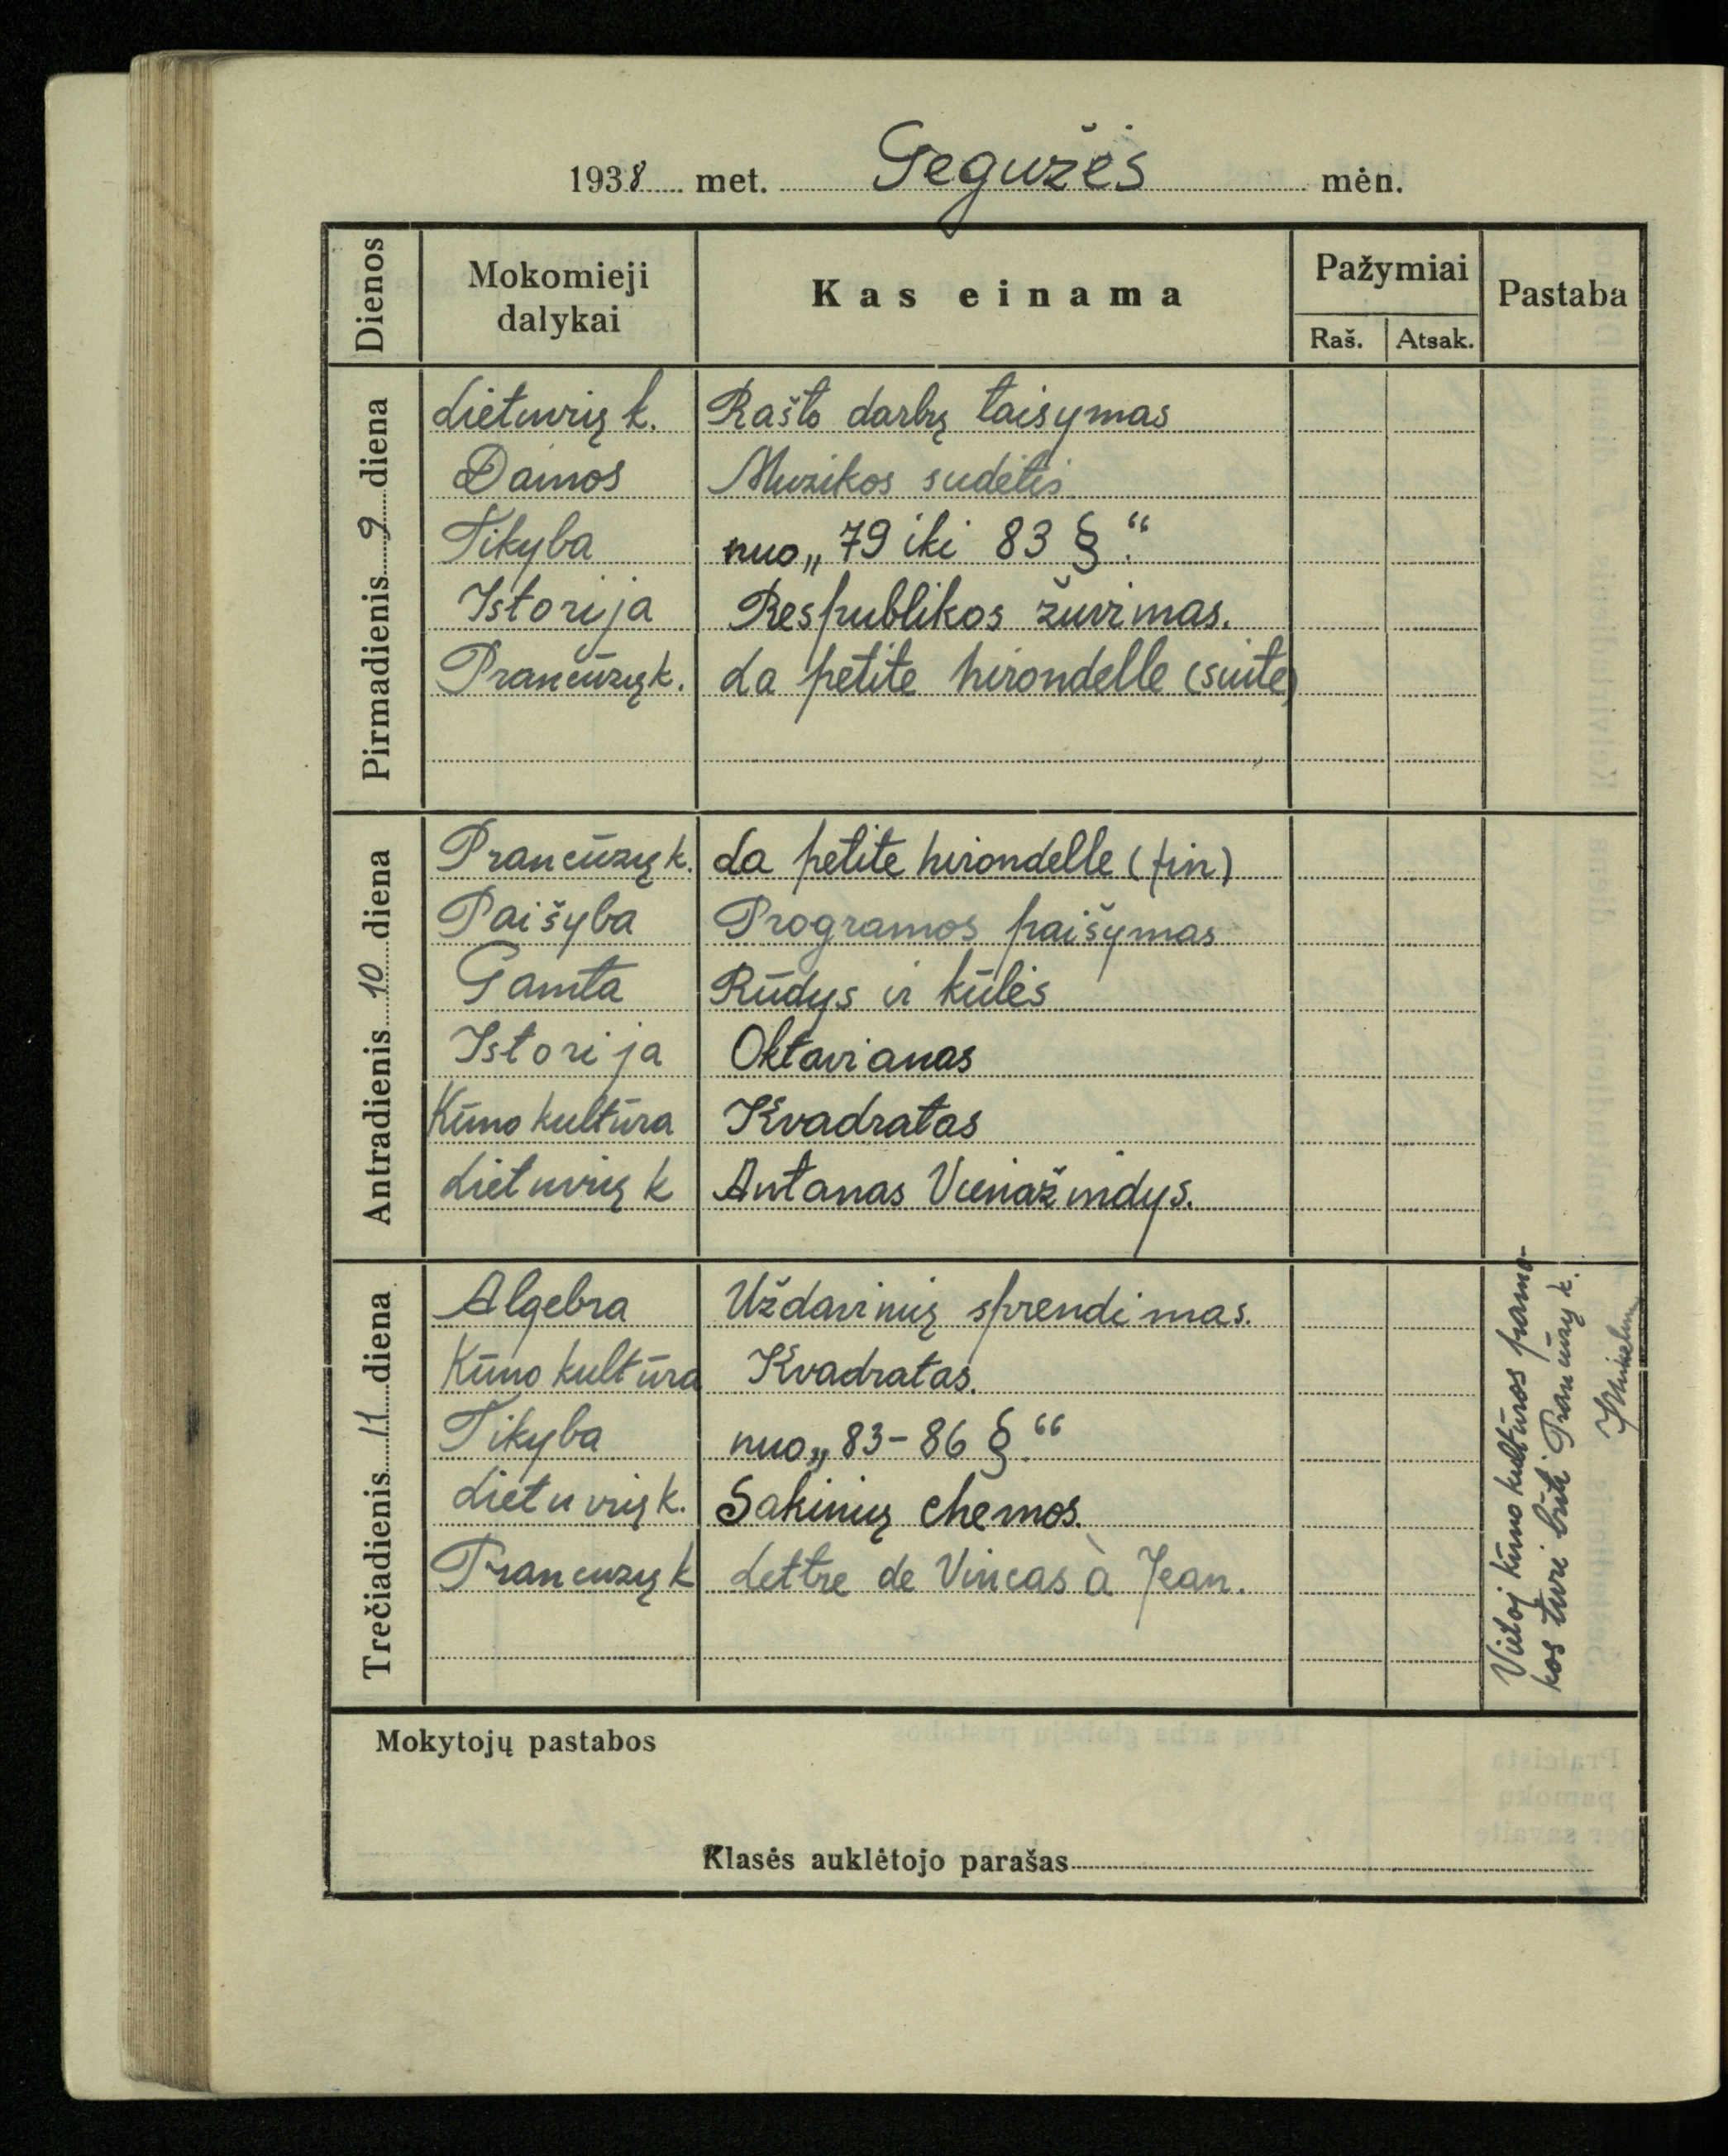 1938 met. Gegužės mėn.
Dienos Mokomieji dalykai Kas einama Pažymiai Pastaba
Raš. Atsak.
Pirmadienis 9 diena
Lietuvių k. Rašto darbų taisymas
Dainos Muzikos sudėtis
Tikyba nuo „79 iki 83 §.“
Istorija Respublikos žuvimas.
Prancūzų k. La petite hirondelle (suite)
Antradienis 10 diena
Prancūzų k. La petite hirondelle (fin)
Paišyba Programos paišymas
Gamta Rūdys ir kūlės
Istorija Oktavianas
Kūno kultūra Kvadratas
Lietuvių k Antanas Vienažindys.
Trečiadienis 11 diena
Algebra Uždavinių sprendimas.
Kūno kultūra Kvadratas.
Tikyba nuo „83-86 §.“
Lietuvių k. Sakinių chemos.
Prancuzų k Lettre de Vincas à Jean.
Vietoj kūno kultūros pamo-
kos turi būti Prancūzų k.
Mokytojų pastabos
Klasės auklėtojo parašas